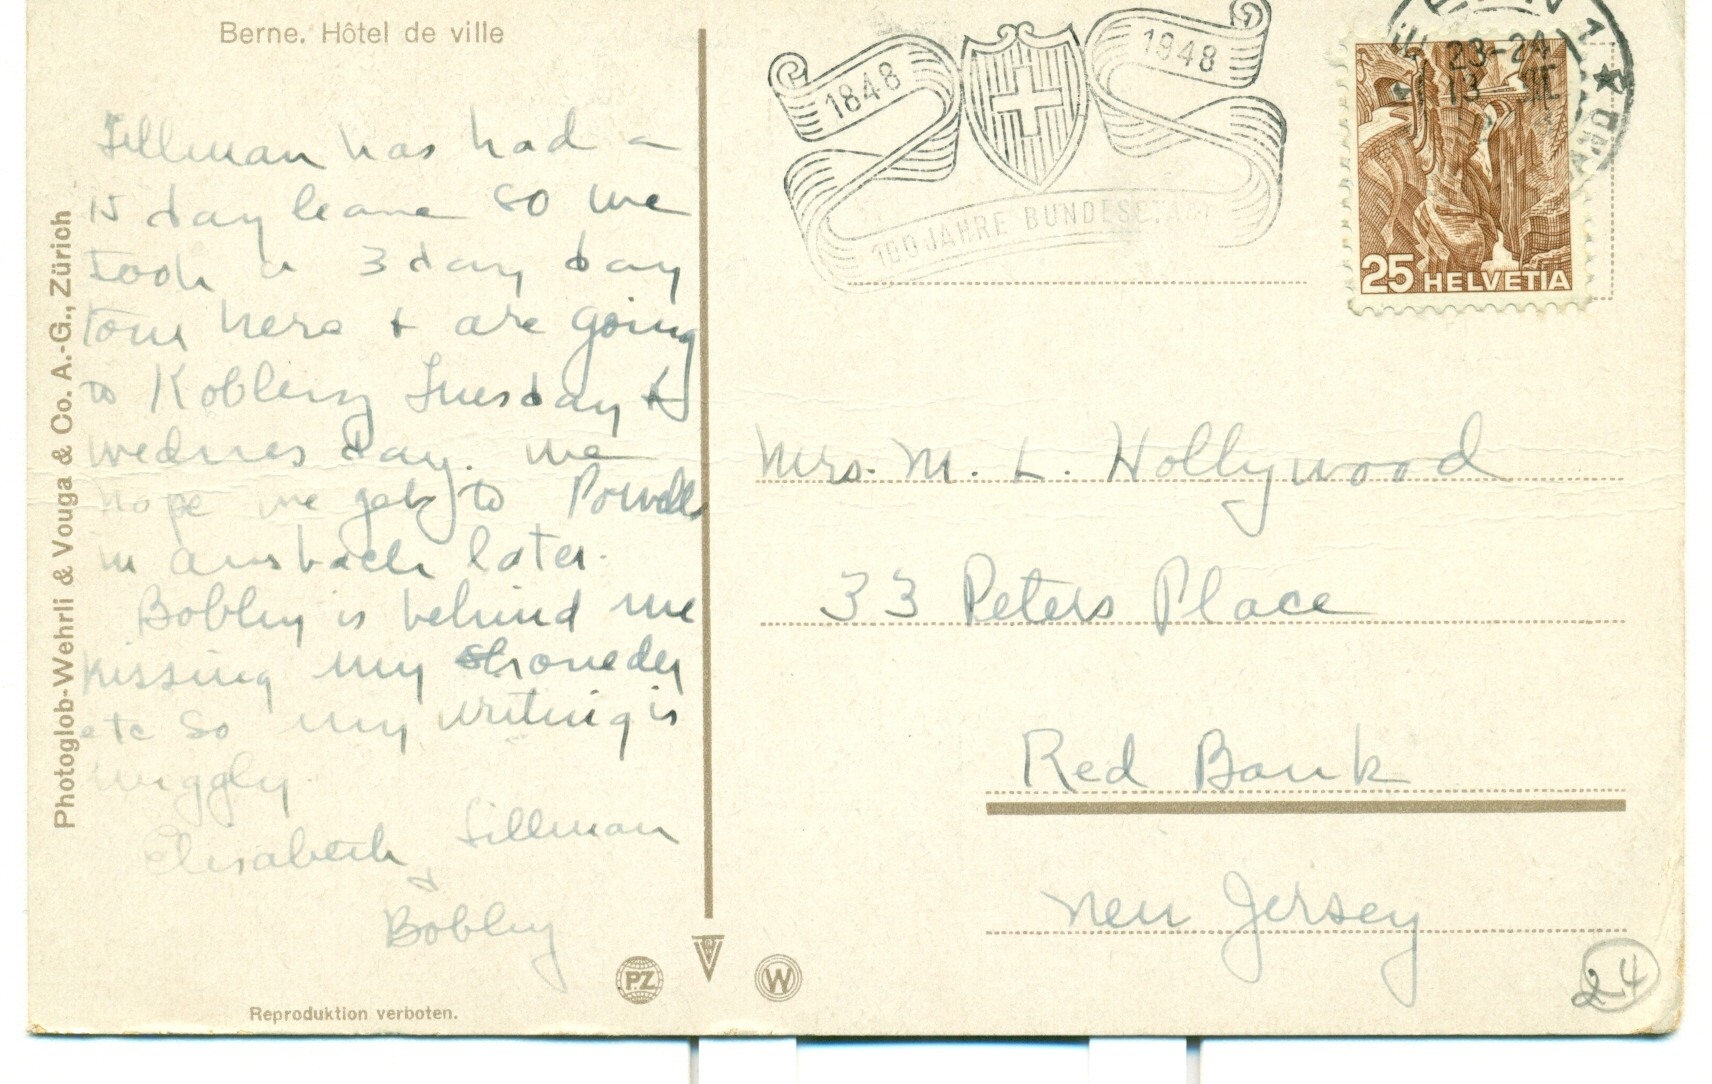 Berne. Hôtel de ville
Tillman has had a
15 day leave so we
took a 3 day day
tour here + are going
to Koblenz Tuesday &
Wednesday. We
hope we get to Powells
in Ansbach later.
Bobby is behind me
kissing my
etc so my writing is
wiggly.
Elisabeth, Tillman
&
Bobby
Photoglob-Wehrli & Vouga & Co. A.-G., Zürich
Reproduktion verboten.
PZ
W
1848
1948
100 JAHRE BUNDESSTAAT
23-24
13
25 HELVETIA
Mrs. M. L. Hollywood
33 Peters Place
Red Bank
New Jersey
24